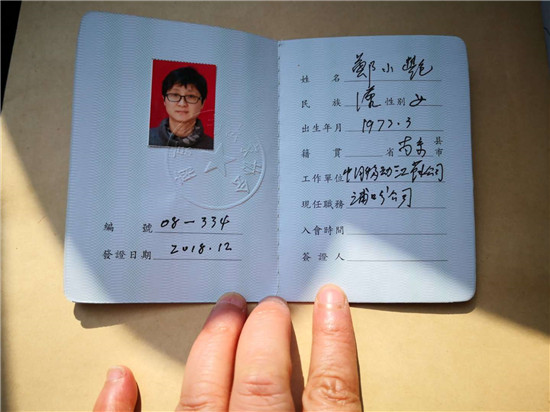 編號 08-334
發證日期 2018.12
姓名 鄭小艷
民族 漢 性別 女
出生年月 1973.3
籍貫 省 南京 縣市
工作單位 中国移动江苏公司
現任職務 浦口分公司
入會時間
簽證人